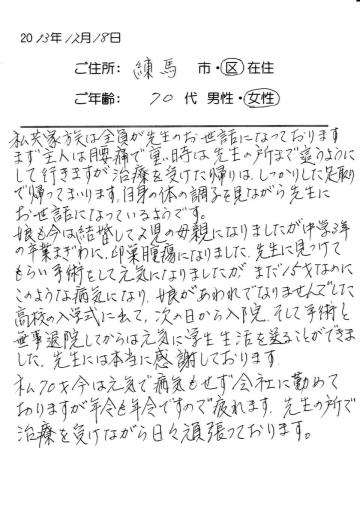 2013年12月18日
ご住所: 練馬 市・区 在住
ご年齢: 70代 男性・女性
私共家族は全員が先生のお世話になっております
まず主人は腰痛で重い時は先生の所まで這うように
して行きますが治療を受けた帰りは、しっかりした足取り
で帰ってまいります。自身の体の調子を見ながら先生に
お世話になっているようです。
娘も今は結婚して2児の母親になりましたが中学3年
の卒業まぎわに、卵巣腫瘍になりました。先生に見つけて
もらい手術をして元気になりましたが まだ15才なのに
このような病気になり、娘があわれでなりませんでした
高校の入学式に出て、次の日から入院、そして手術と
無事退院してからは元気に学生生活を送ることができま
した。先生には本当に感謝しております。
私70才今は元気で病気もせず会社に勤めて
おりますが年令も年令ですので疲れます。先生の所で
治療を受けながら日々頑張っております。